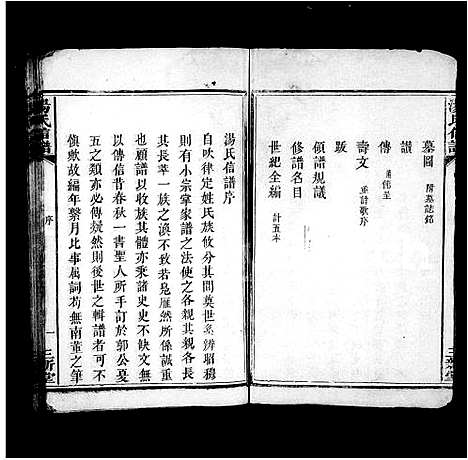 湯氏信譜
墓圖 附墓誌銘
讃
傳
壽文 並詩歌序
跋
領譜規議
修譜名目
世紀全編 計五本
湯氏信譜序
自吹律定姓氏族攸分其間奠世系辨昭穆
則有小宗掌家譜之法使之各親其親各長
其長萃一族之渙不致若是雁然所係誠重
也顧譜以收族其體亦秉諸史史不缺文要
以傳信昔春秋一書聖人所手訂於郭公夏
五之類亦必傳疑然則後世之輯譜者可不
慎歟故編年繫月比事屬詞苟無南董之筆
湯氏信譜
序
一
三新堂